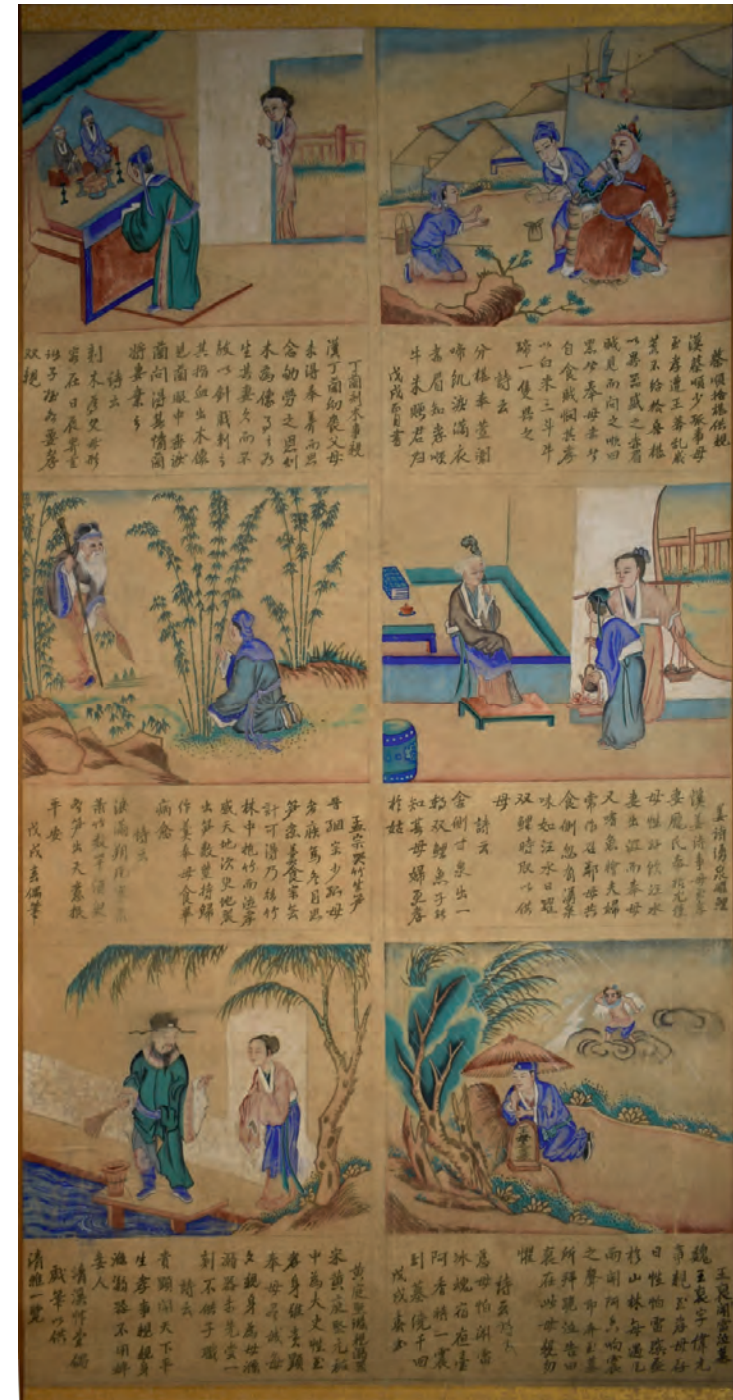 蔡順拾椹供親
漢蔡順少孤事母
至孝遭王莽亂歲
荒不給拾桑椹
以異器盛之赤眉
賊見而問之順曰
黑者奉母赤者
自食賊憫其孝
以白米三斗牛
蹄一隻與之
詩云
分椹奉萱闈
啼飢淚滿衣
赤眉知孝順
牛米贈君歸
戊戌書
丁蘭刻木事親
漢丁蘭幼喪父母
未得奉養而思
念劬勞之恩刻
木為像事之如
生其妻久而不
敬以針戲刺之
其指血出木像
見蘭眼中垂淚
蘭問得其情蘭
將妻棄之
詩云
刻木為父母形
容在日晨寄言
諸子姪各要孝
双親
姜詩湧泉躍鯉
漢姜詩事母至孝
妻龐氏奉姑尤謹
母性好飲江水
妻出汲而奉母
又嗜魚膾夫婦
常作召鄰母共
食側忽有湧泉
味如江水日躍
双鯉時取以供
母
詩云
舍側甘泉出一
朝双鯉魚子能
知事母婦更孝
於姑
孟宗哭竹生笋
孟宗少孤母
老病篤冬月思
笋煮羹食宗無
計可得乃往竹
林中抱竹而泣孝
感天地須臾地裂
出笋數莖持歸
作羹奉母食畢
病愈
詩云
淚滴朔風寒蕭
蕭竹數竿須臾
冬笋出天意報
平安
戊戌偶筆
王裒聞雷泣墓
魏王裒字偉元
事親至孝母在
日性怕雷既卒葬
於山林每遇風
雨聞阿香响震
之聲即奔至墓
所拜跪泣告曰
裒在此母親勿
懼
詩云
慈母怕聞雷
冰魂宿夜臺
阿香時一震
到墓繞千回
戊戌春書
黃庭堅滌親溺器
宋黃庭堅元祐
中為太史性至
孝身雖貴顯
奉母盡誠每
夕親身為母滌
溺器未嘗一
刻不供子職
詩云
貴顯聞天下平
生孝事親親身
滌溺器不用婢
妾人
清溪竹堂錫
戲筆以供
清雅一覽